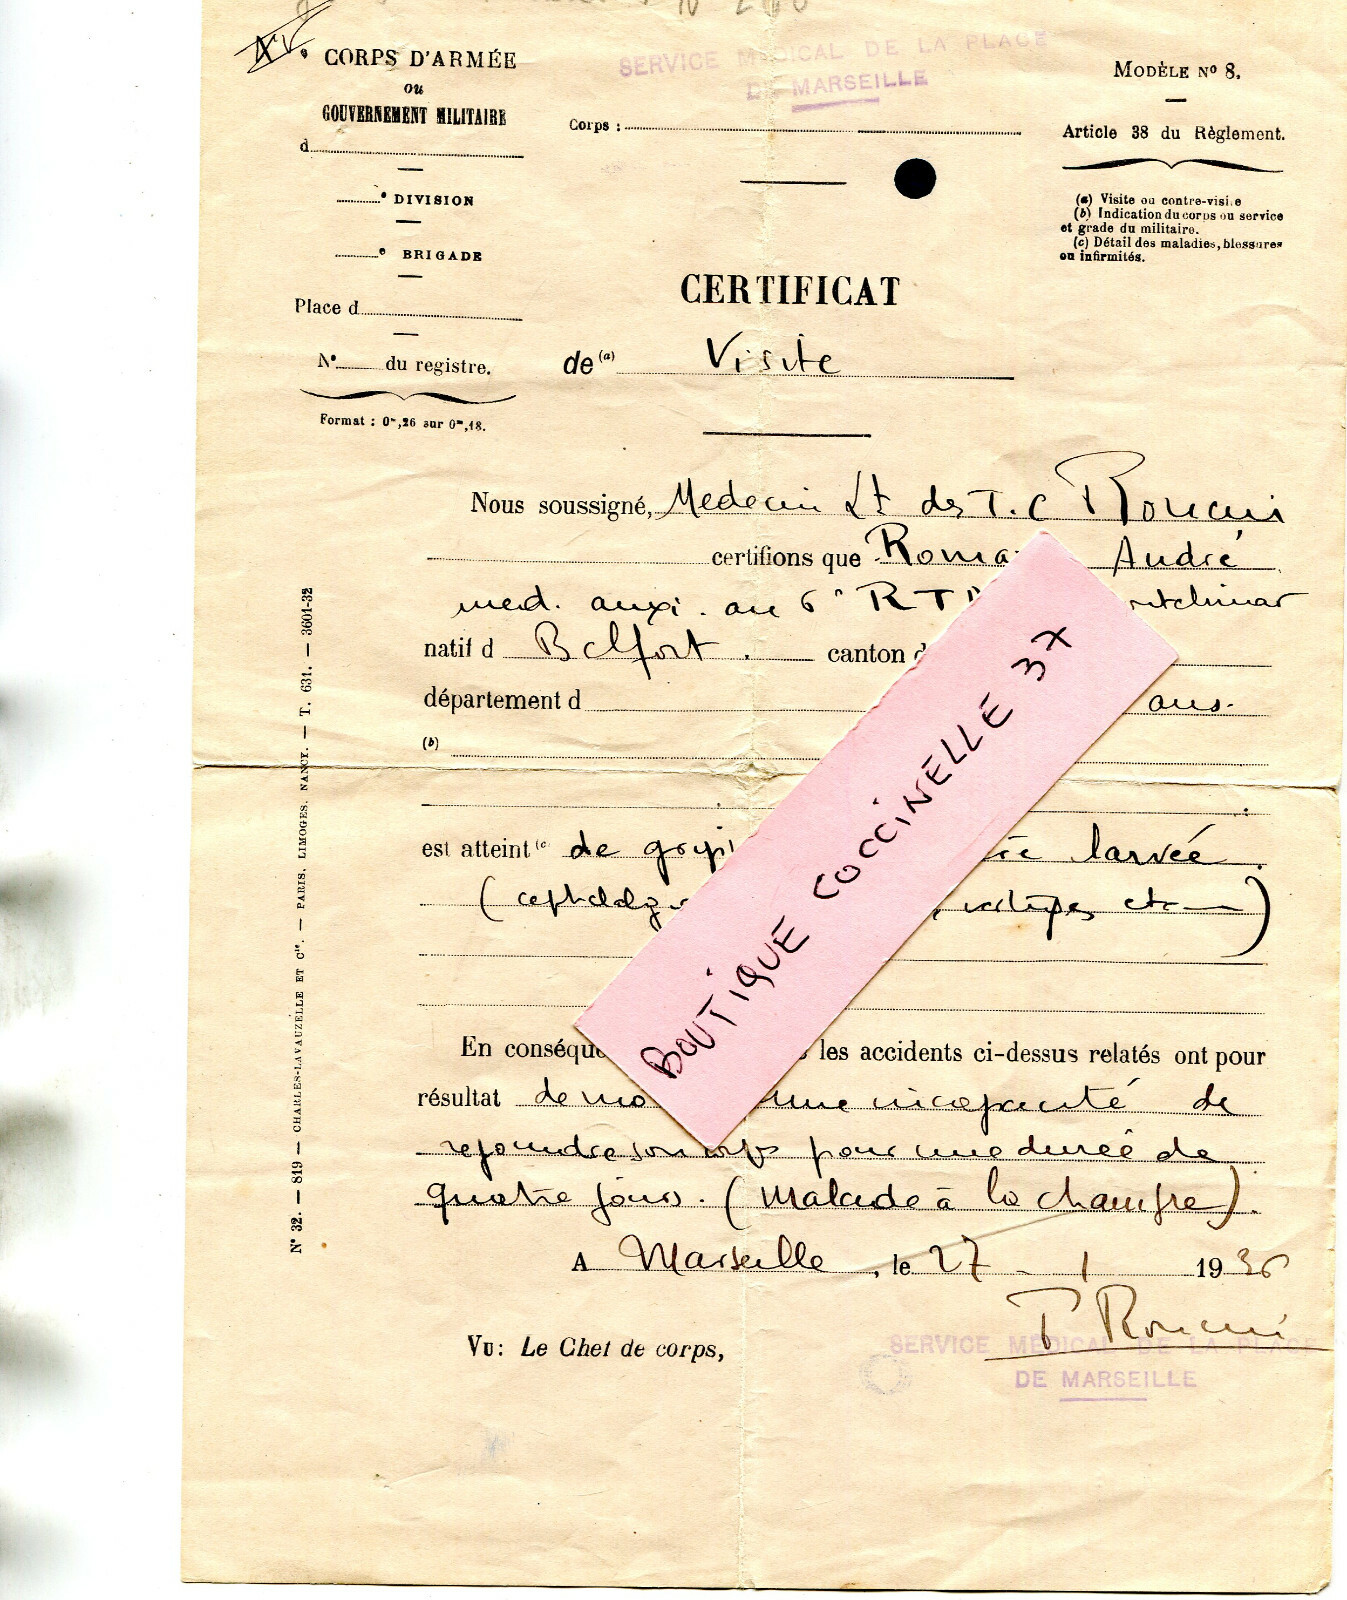 XVe CORPS D'ARMÉE
ou
GOUVERNEMENT MILITAIRE
d
e DIVISION
e BRIGADE
Place d
N° du registre.
Format : 0m,26 sur 0m,18.
SERVICE MEDICAL DE LA PLACE
DE MARSEILLE
Corps :
MODÈLE N° 8.
Article 38 du Règlement.
(a) Visite ou contre-visite
(b) Indication du corps ou service
et grade du militaire.
(c) Détail des maladies, blessures
ou infirmités.
CERTIFICAT
de (a) Visite
Nous soussigné, Medecin Lt des T.C
certifions que Roma André
med. auxi. au 6e RT
natif d Belfort. canton d
département d ans.
(b)
est atteint (c de larvée
( etc )
En conséque les accidents ci-dessus relatés ont pour
résultat de une incapacité de
rejoindre son corps pour une durée de
quatre jours. (Malade à la chambre).
A Marseille, le 27 - 1 1936
Vu : Le Chef de corps,
SERVICE MEDICAL DE LA PLACE
DE MARSEILLE
BOUTIQUE COCCINELLE 37
N° 32. — 819 — CHARLES-LAVAUZELLE ET Cie. — PARIS, LIMOGES, NANCY. — T. 631. — 3601-32